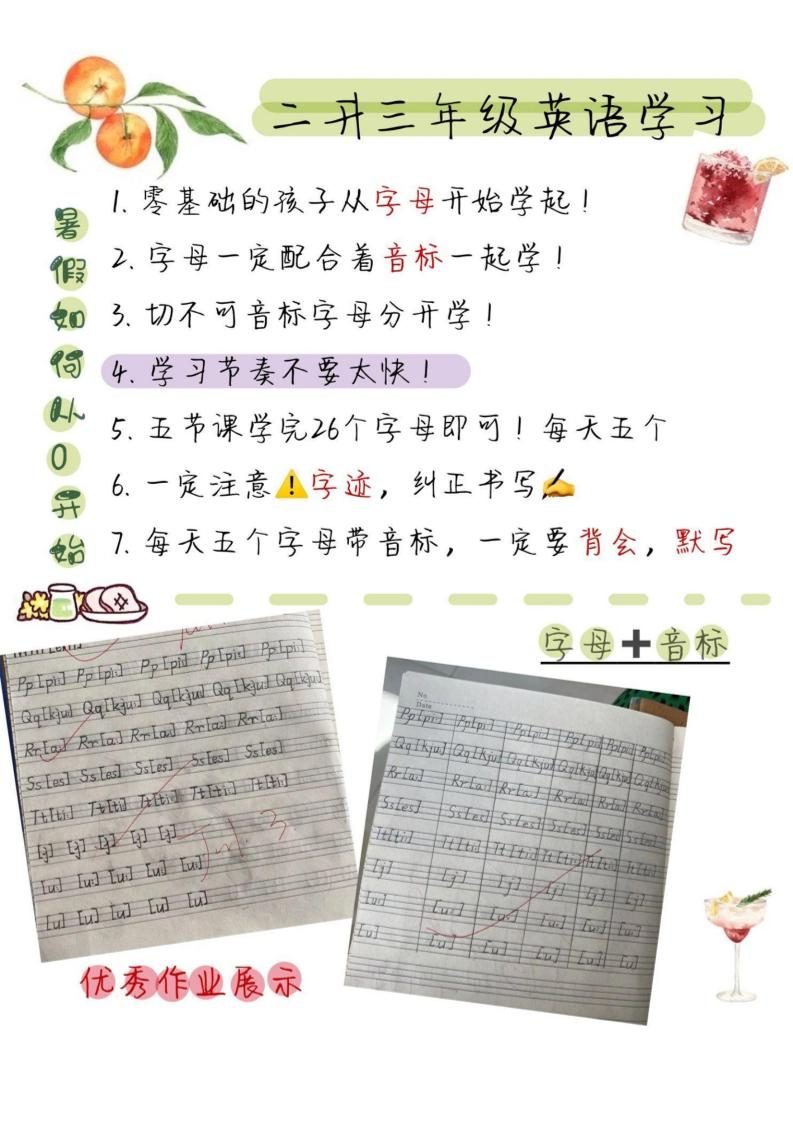 二升三年级英语学习
暑假如何从0开始
1. 零基础的孩子从字母开始学起！
2. 字母一定配合着音标一起学！
3. 切不可音标字母分开学！
4. 学习节奏不要太快！
5. 五节课学完26个字母即可！每天五个
6. 一定注意⚠️字迹，纠正书写✍️
7. 每天五个字母带音标，一定要背会，默写
字母➕音标
Pp[pi:] Pp[pi:] Pp[pi:] Pp[pi:] Pp[pi:]
Qq[kju:] Qq[kju:] Qq[kju:] Qq[kju:] Qq[kju:]
Rr[a:] Rr[a:] Rr[a:] Rr[a:] Rr[a:]
Ss[es] Ss[es] Ss[es] Ss[es] Ss[es]
Tt[ti:] Tt[ti:] Tt[ti:] Tt[ti:] Tt[ti:]
[j] [j] [j] [j] [j]
[u:] [u:] [u:] [u:] [u:]
[u] [u] [u] [u] [u]
No.
Date
Pp[pi:] Pp[pi:] Pp[pi:] Pp[pi:] Pp[pi:] Pp[pi:]
Qq[kju:] Qq[kju:] Qq[kju:] Qq[kju:] Qq[kju:] Qq[kju:]
Rr[a:] Rr[a:] Rr[a:] Rr[a:] Rr[a:] Rr[a:]
Ss[es] Ss[es] Ss[es] Ss[es] Ss[es] Ss[es]
Tt[ti:] Tt[ti:] Tt[ti:] Tt[ti:] Tt[ti:] Tt[ti:]
[j] [j] [j] [j] [j] [j]
[u:] [u:] [u:] [u:] [u:] [u:]
[u] [u] [u] [u] [u] [u]
优秀作业展示